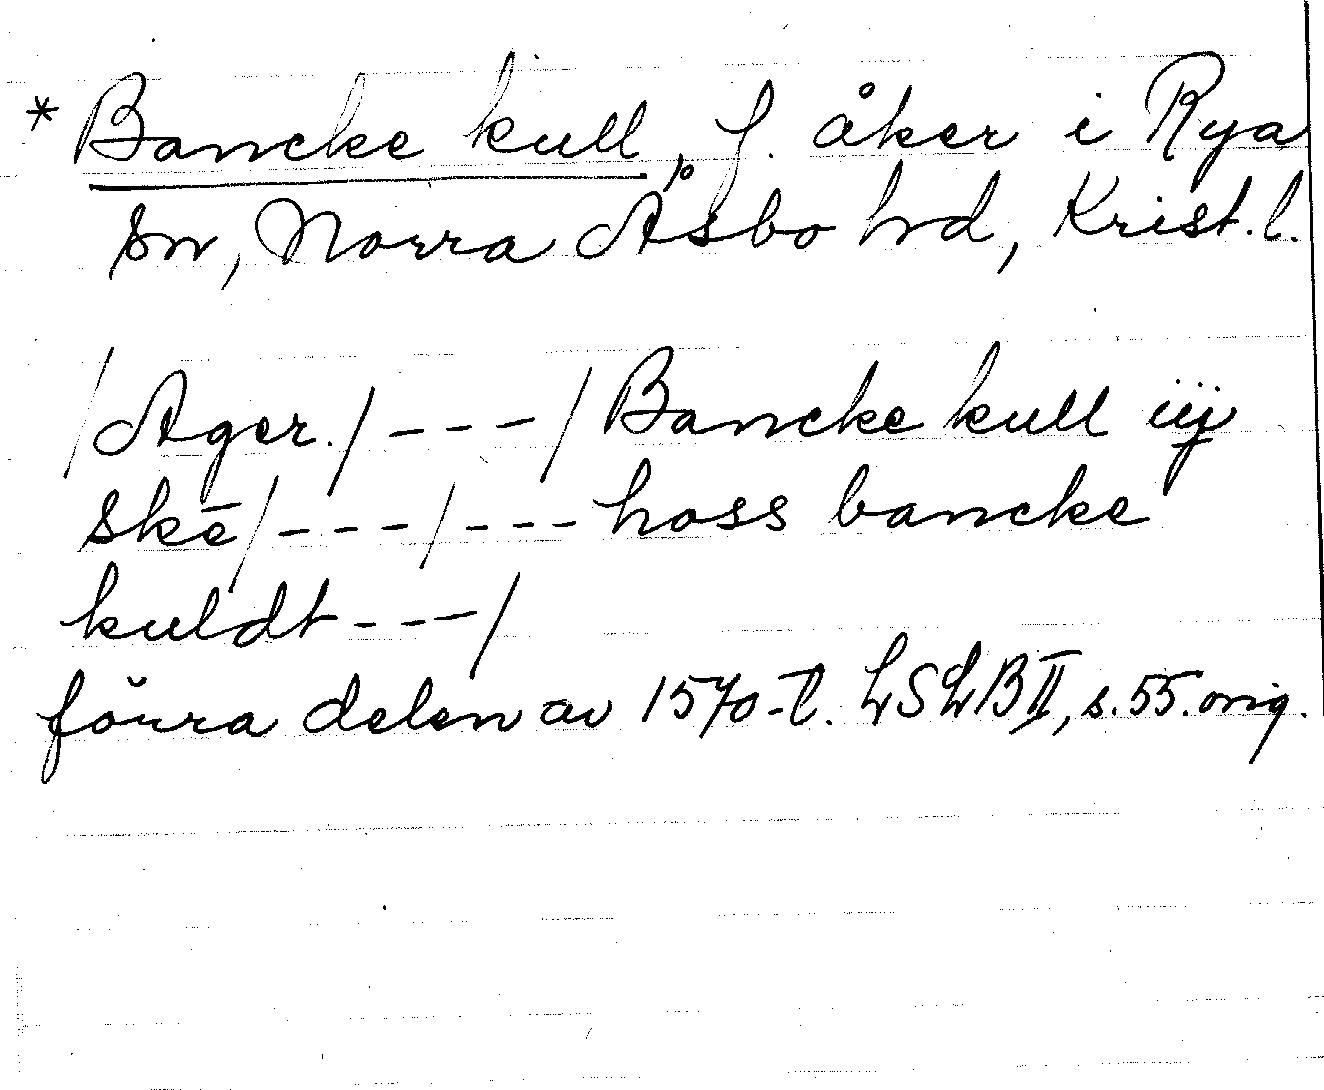 * Bancke kull, f. åker i Rya
sn, Norra Åsbo hd, Krist. l.
/Ager./ --- / Bancke kull iij
skē/ --- / --- hoss bancke
kuldt --- /
förra delen av 1570-t. LSLB II, s. 55. orig.